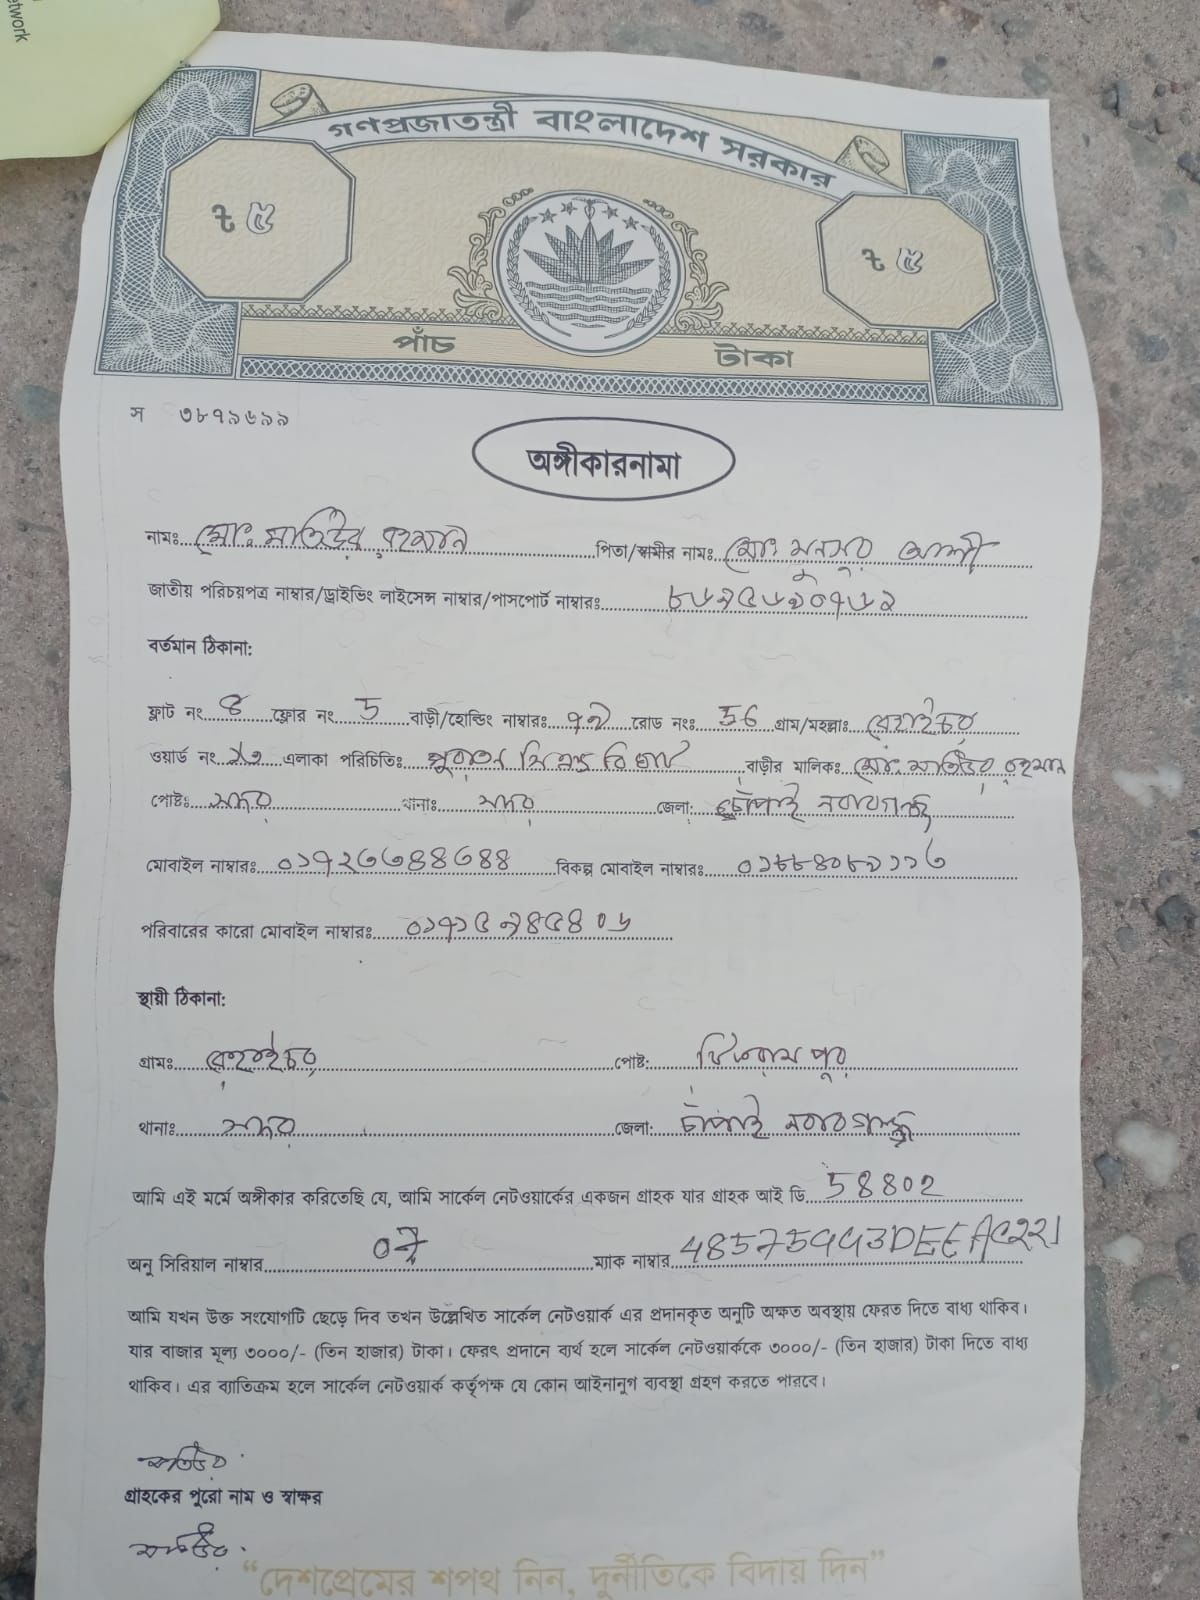 etwork
গণপ্রজাতন্ত্রী বাংলাদেশ সরকার
৳ ৫
৳ ৫
পাঁচ টাকা
স ৩৮৭৯৬৯৯
অঙ্গীকারনামা
নামঃ মোঃ মতিউর রহমান পিতা/স্বামীর নামঃ মোঃ মুনসুর আলী
জাতীয় পরিচয়পত্র নাম্বার/ড্রাইভিং লাইসেন্স নাম্বার/পাসপোর্ট নাম্বারঃ
বর্তমান ঠিকানা:
ফ্লাট নং ৪ ফ্লোর নং 5 বাড়ী/হোল্ডিং নাম্বারঃ রোড নংঃ 56 গ্রাম/মহল্লাঃ রেহাইচর
ওয়ার্ড নং এলাকা পরিচিতিঃ পুরাতন বাড়ীর মালিকঃ মোঃ মতিউর রহমান
পোষ্টঃ সদর থানাঃ সদর জেলা: চাঁপাই নবাবগঞ্জ
মোবাইল নাম্বারঃ ০১৭২৩৩৪৪৩৪৪ বিকল্প মোবাইল নাম্বারঃ
পরিবারের কারো মোবাইল নাম্বারঃ ০১৭১৫৯৪৫৪০৬
স্থায়ী ঠিকানা:
গ্রামঃ রেহাইচর পোষ্ট:
থানাঃ সদর জেলা: চাঁপাই নবাবগঞ্জ
আমি এই মর্মে অঙ্গীকার করিতেছি যে, আমি সার্কেল নেটওয়ার্কের একজন গ্রাহক যার গ্রাহক আই ডি 58802
অনু সিরিয়াল নাম্বার ম্যাক নাম্বার
আমি যখন উক্ত সংযোগটি ছেড়ে দিব তখন উল্লেখিত সার্কেল নেটওয়ার্ক এর প্রদানকৃত অনুটি অক্ষত অবস্থায় ফেরত দিতে বাধ্য থাকিব।
যার বাজার মূল্য ৩০০০/- (তিন হাজার) টাকা। ফেরৎ প্রদানে ব্যর্থ হলে সার্কেল নেটওয়ার্ককে ৩০০০/- (তিন হাজার) টাকা দিতে বাধ্য
থাকিব। এর ব্যাতিক্রম হলে সার্কেল নেটওয়ার্ক কর্তৃপক্ষ যে কোন আইনানুগ ব্যবস্থা গ্রহণ করতে পারবে।
মতিউর
গ্রাহকের পুরো নাম ও স্বাক্ষর
মতিউর
“দেশপ্রেমের শপথ নিন, দুর্নীতিকে বিদায় দিন”